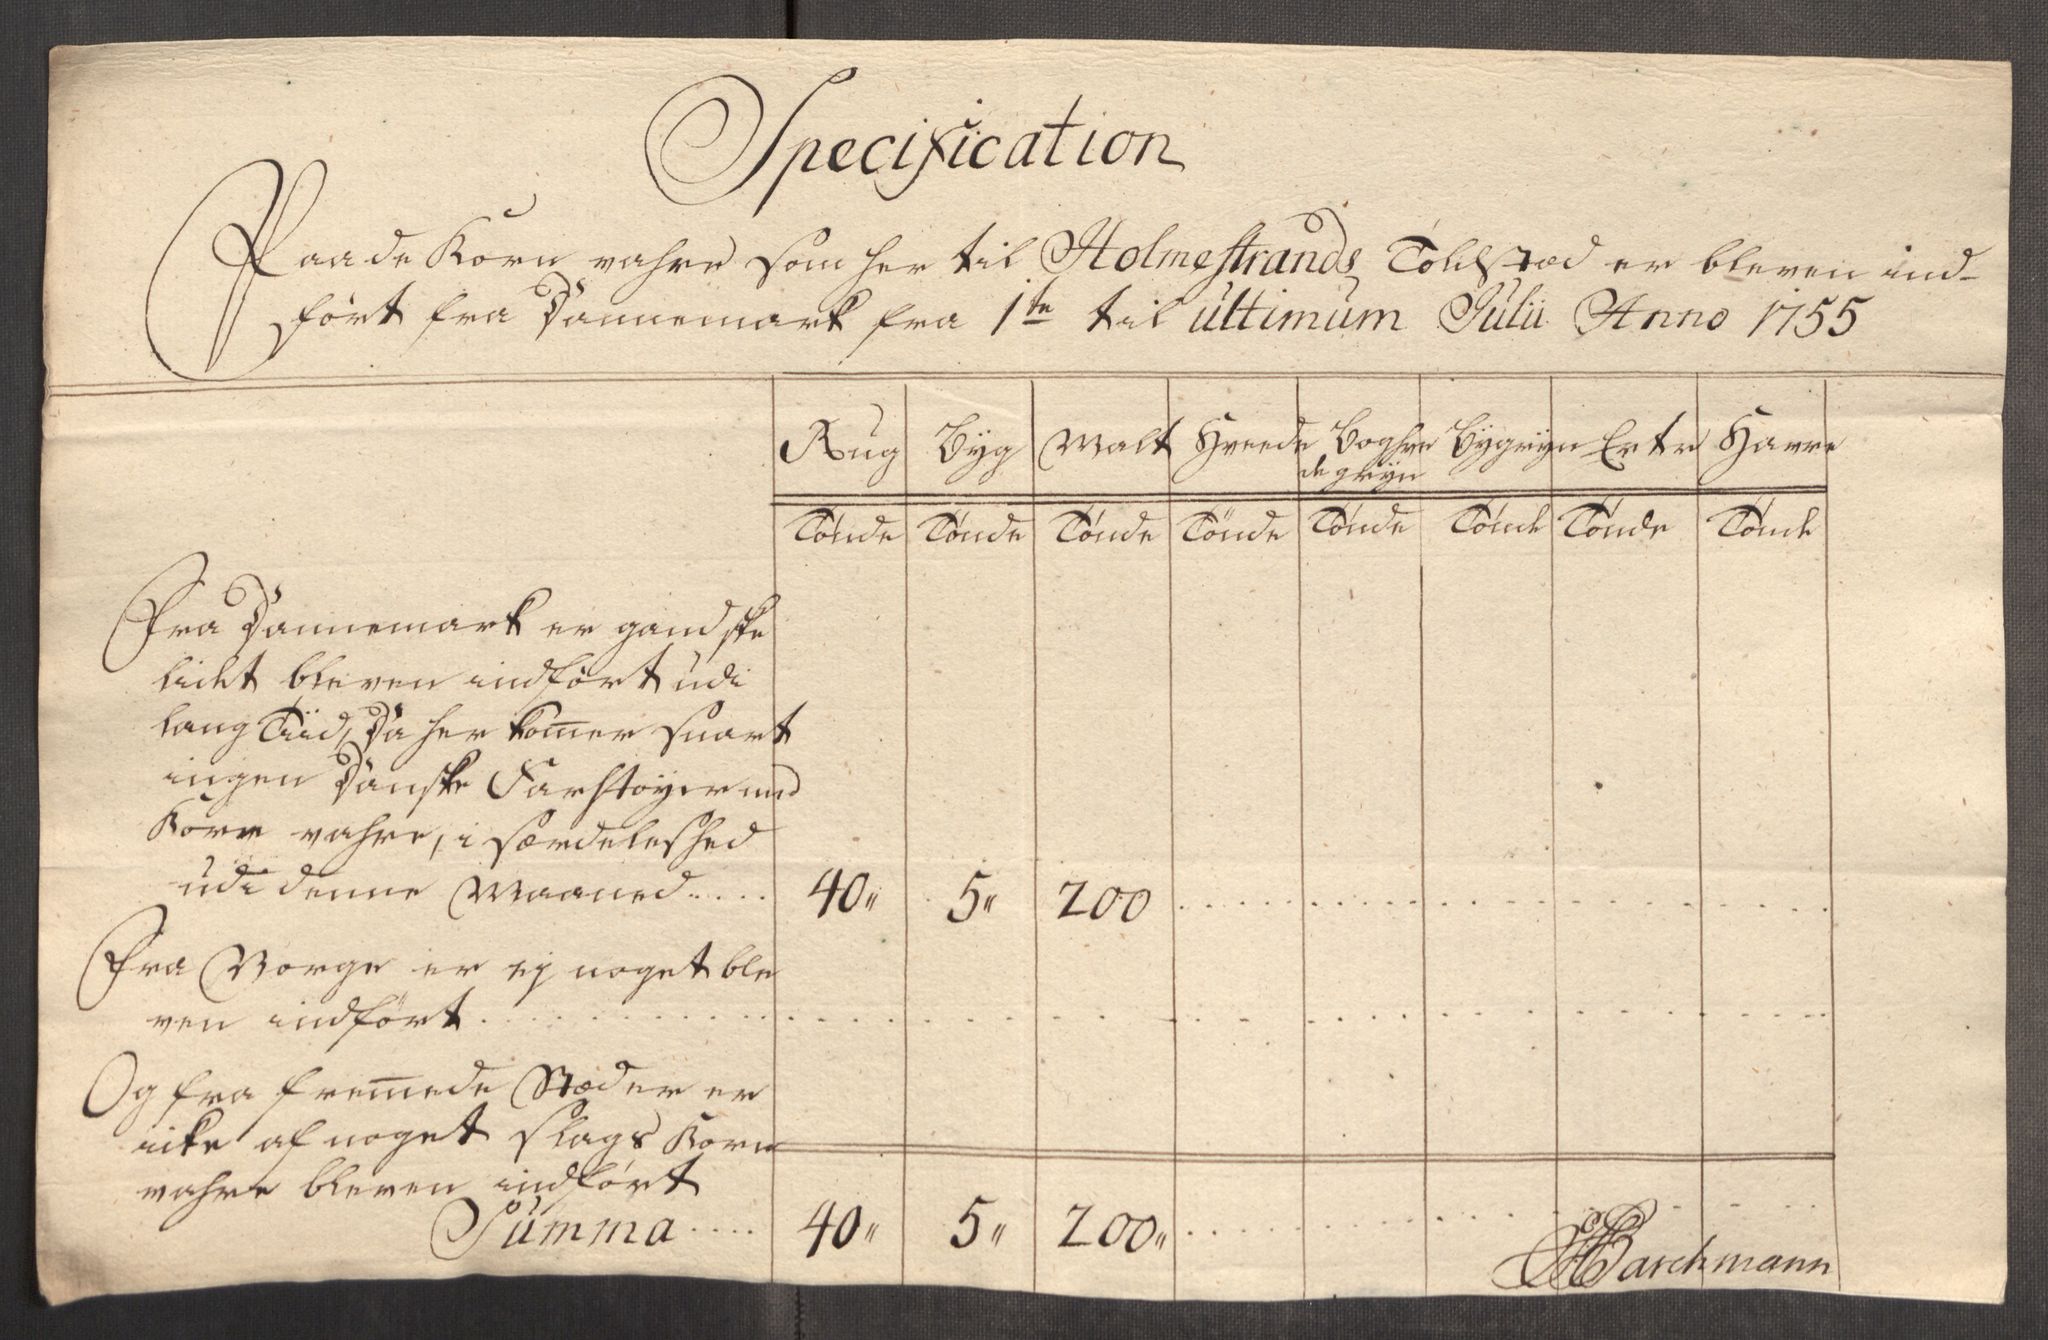 Specification
Paa de Korn vahre som her til Holmestrands Toldstæd er bleven ind-
ført fra Dannemark fra 1te til ultimum Julii Anno 1755
Rug Byg Malt Hveede Boghve Bygryn Erter Havre
de gryn
Tønde Tønde Tønde Tønde Tønde Tønde Tønde Tønde
Fra Dannemark er gandske
lidet bleven indført udi
lang Tiid, da her komer snart
ingen Danske Farstøyer med
Korn vahre, i særdeleshed
udi denne Maaned..... 40" 5" 200
Fra Norge er ej noget ble
ven indført
Og fra fremede Stæder er
icke af noget slags Korn
vahre bleven indført
Summa.... 40" 5" 200"
Barchmann